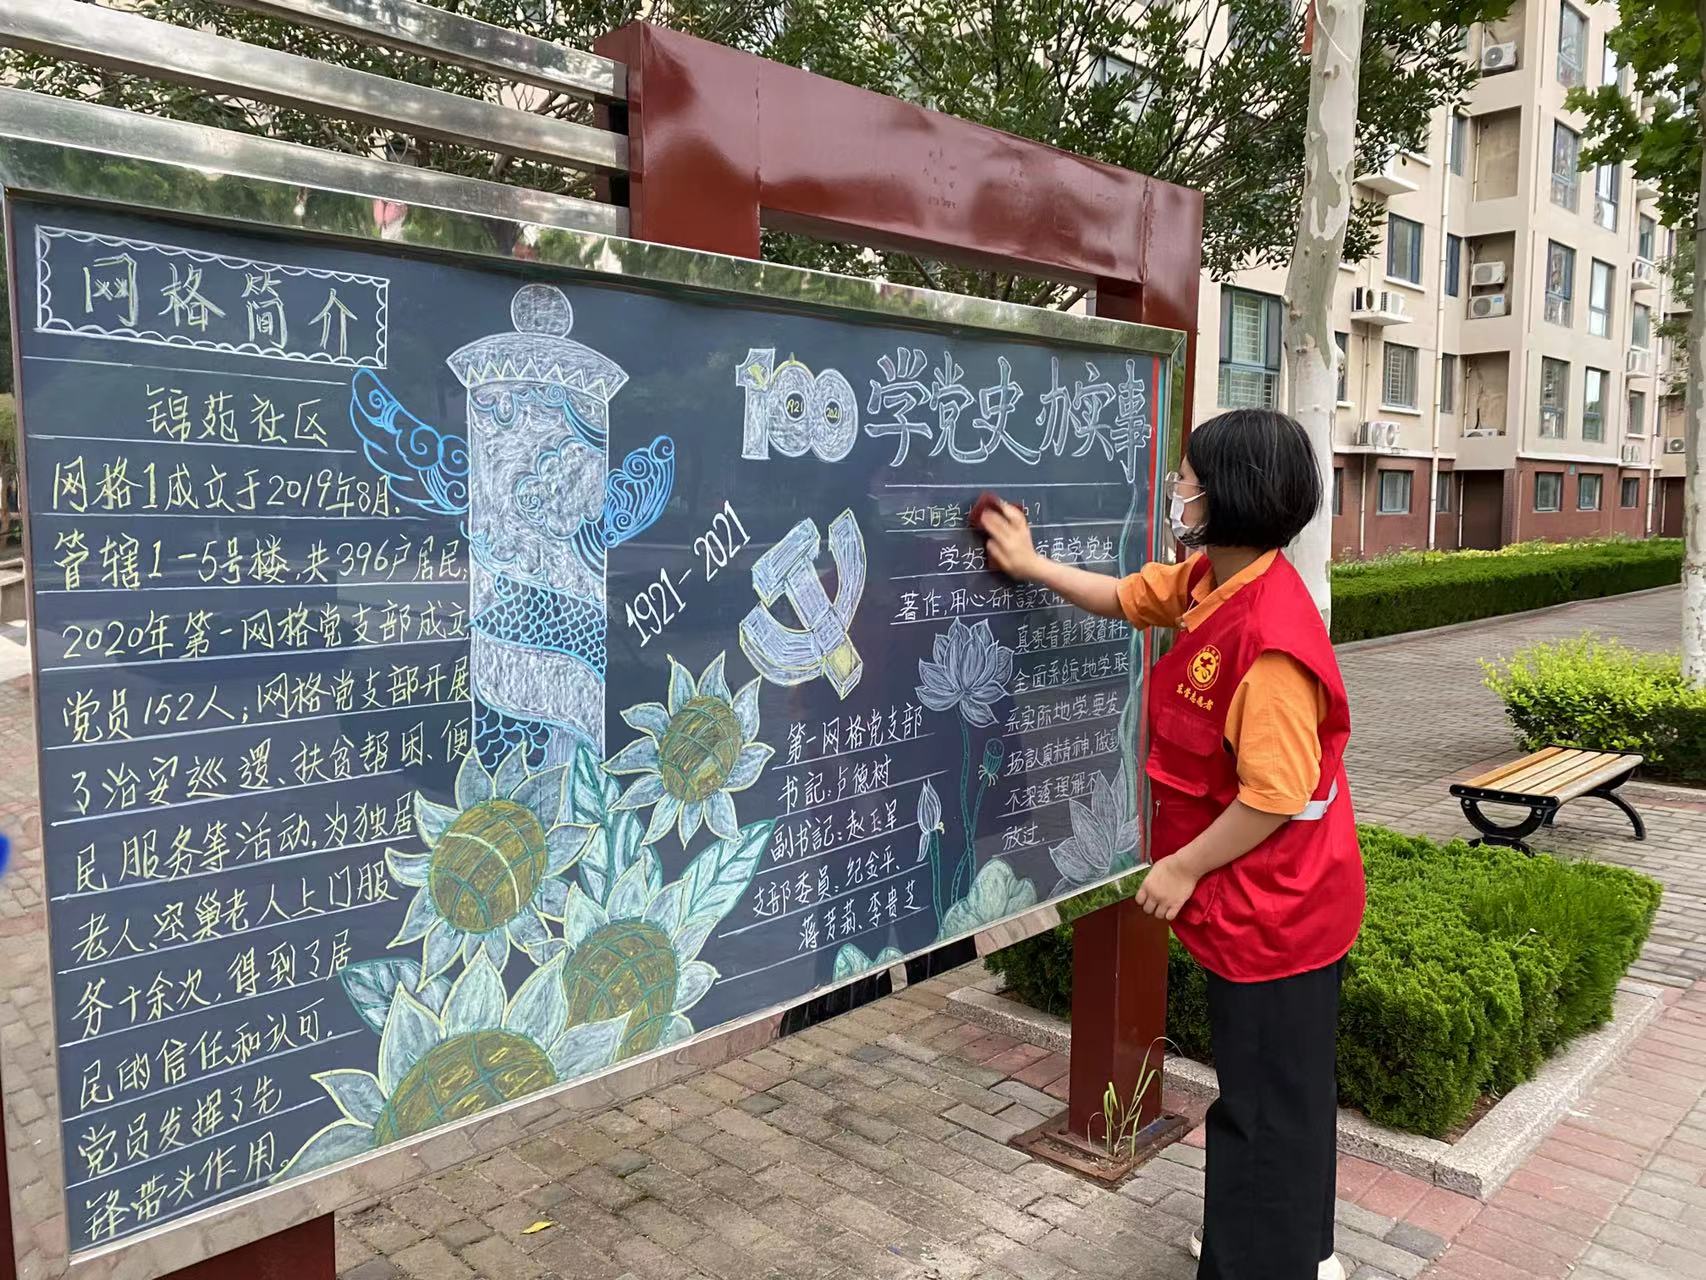 网格简介
锦苑社区
网格1成立于2019年8月.
管辖1-5号楼,共396户居民;
2020年第一网格党支部成立
党员152人;网格党支部开展
了治安巡逻、扶贫帮困、便
民服务等活动,为独居
老人、空巢老人上门服
务十余次,得到了居
民的信任和认可.
党员发挥了先
锋带头作用.
1921-2021
100
1921
2021
学党史办实事
第一网格党支部
书記:卢德树
副书記:赵玉军
支部委員:纪金平、
蒋芳莉、李贵芝
如何学
学好 首要学党史
著作,用心研读文
真观看影像資料
全面系統地学联
系实际地学,要发
扬認真精神,做到
不深透理解不
放过.
东营志愿者